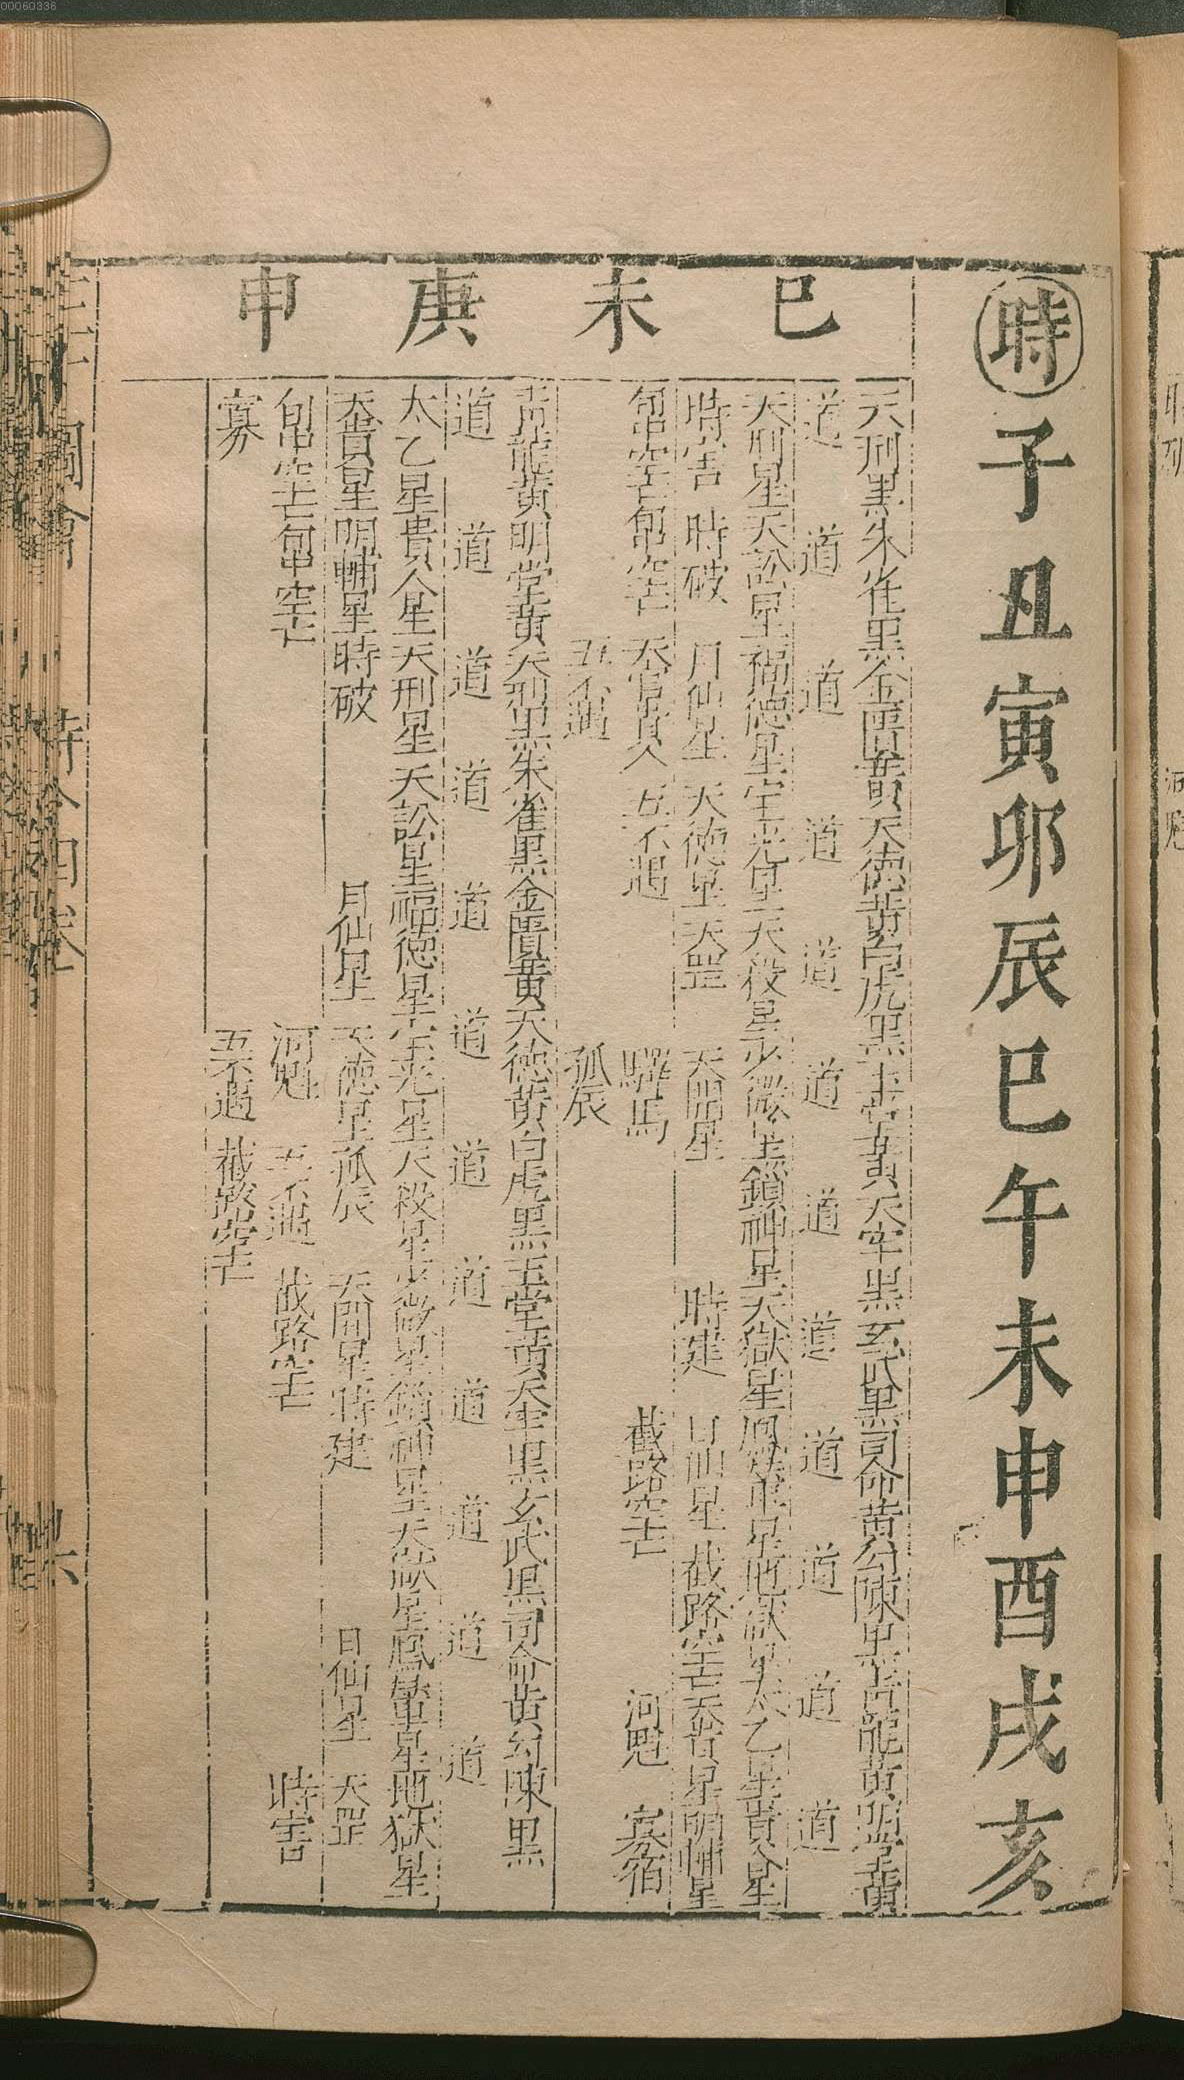 00060336
時子丑寅卯辰巳午未申酉戌亥
巳未庚申
天刑黑朱雀黑金匱黃天德黃白虎黑玉堂黃天牢黑玄武黑司命黃勾陳黑青龍黃明堂黃
道道道道道道道道道道道道
天刑星天訟星福德星宝光星天殺星少微星鎖神星天獄星鳳輦星地獄星太乙星貴人星
時害時破月仙星天德星天罡天開星時建日仙星截路空亡天貴星明輔星
旬中空亡旬中空亡天官貴人五不遇驛馬截路空亡河魁寡宿
五不遇孤辰
青龍黃明堂黃天刑黑朱雀黑金匱黃天德黃白虎黑玉堂黃天牢黑玄武黑司命黃勾陳黑
道道道道道道道道道道道道
太乙星貴人星天刑星天訟星福德星宝光星天殺星少微星鎖神星天獄星鳳輦星地獄星
天貴星明輔星時破月仙星天德星孤辰天開星時建日仙星天罡
旬中空亡旬中空亡河魁五不遇截路空亡時害
寡五不遇截路空亡
三才圖會 時令四卷